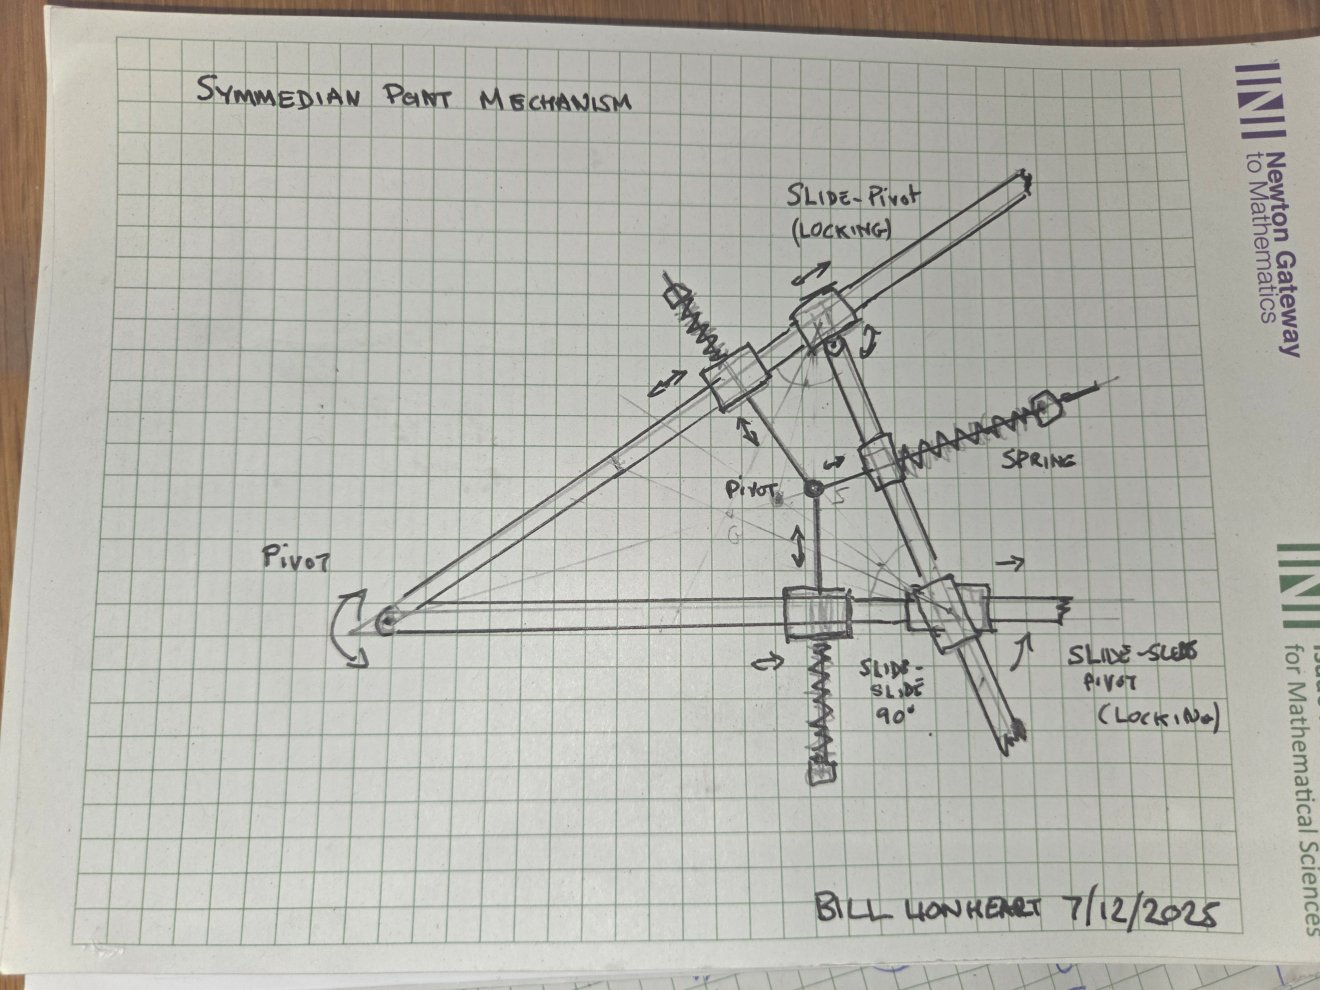 SYMMEDIAN POINT MECHANISM
SLIDE-PIVOT
(LOCKING)
SPRING
PIVOT
S
G
PIVOT
SLIDE-
SLIDE
90°
SLIDE-
PIVOT
(LOCKING)
BILL LIONHEART 7/12/2025
Newton Gateway
to Mathematics
for Mathematical Sciences